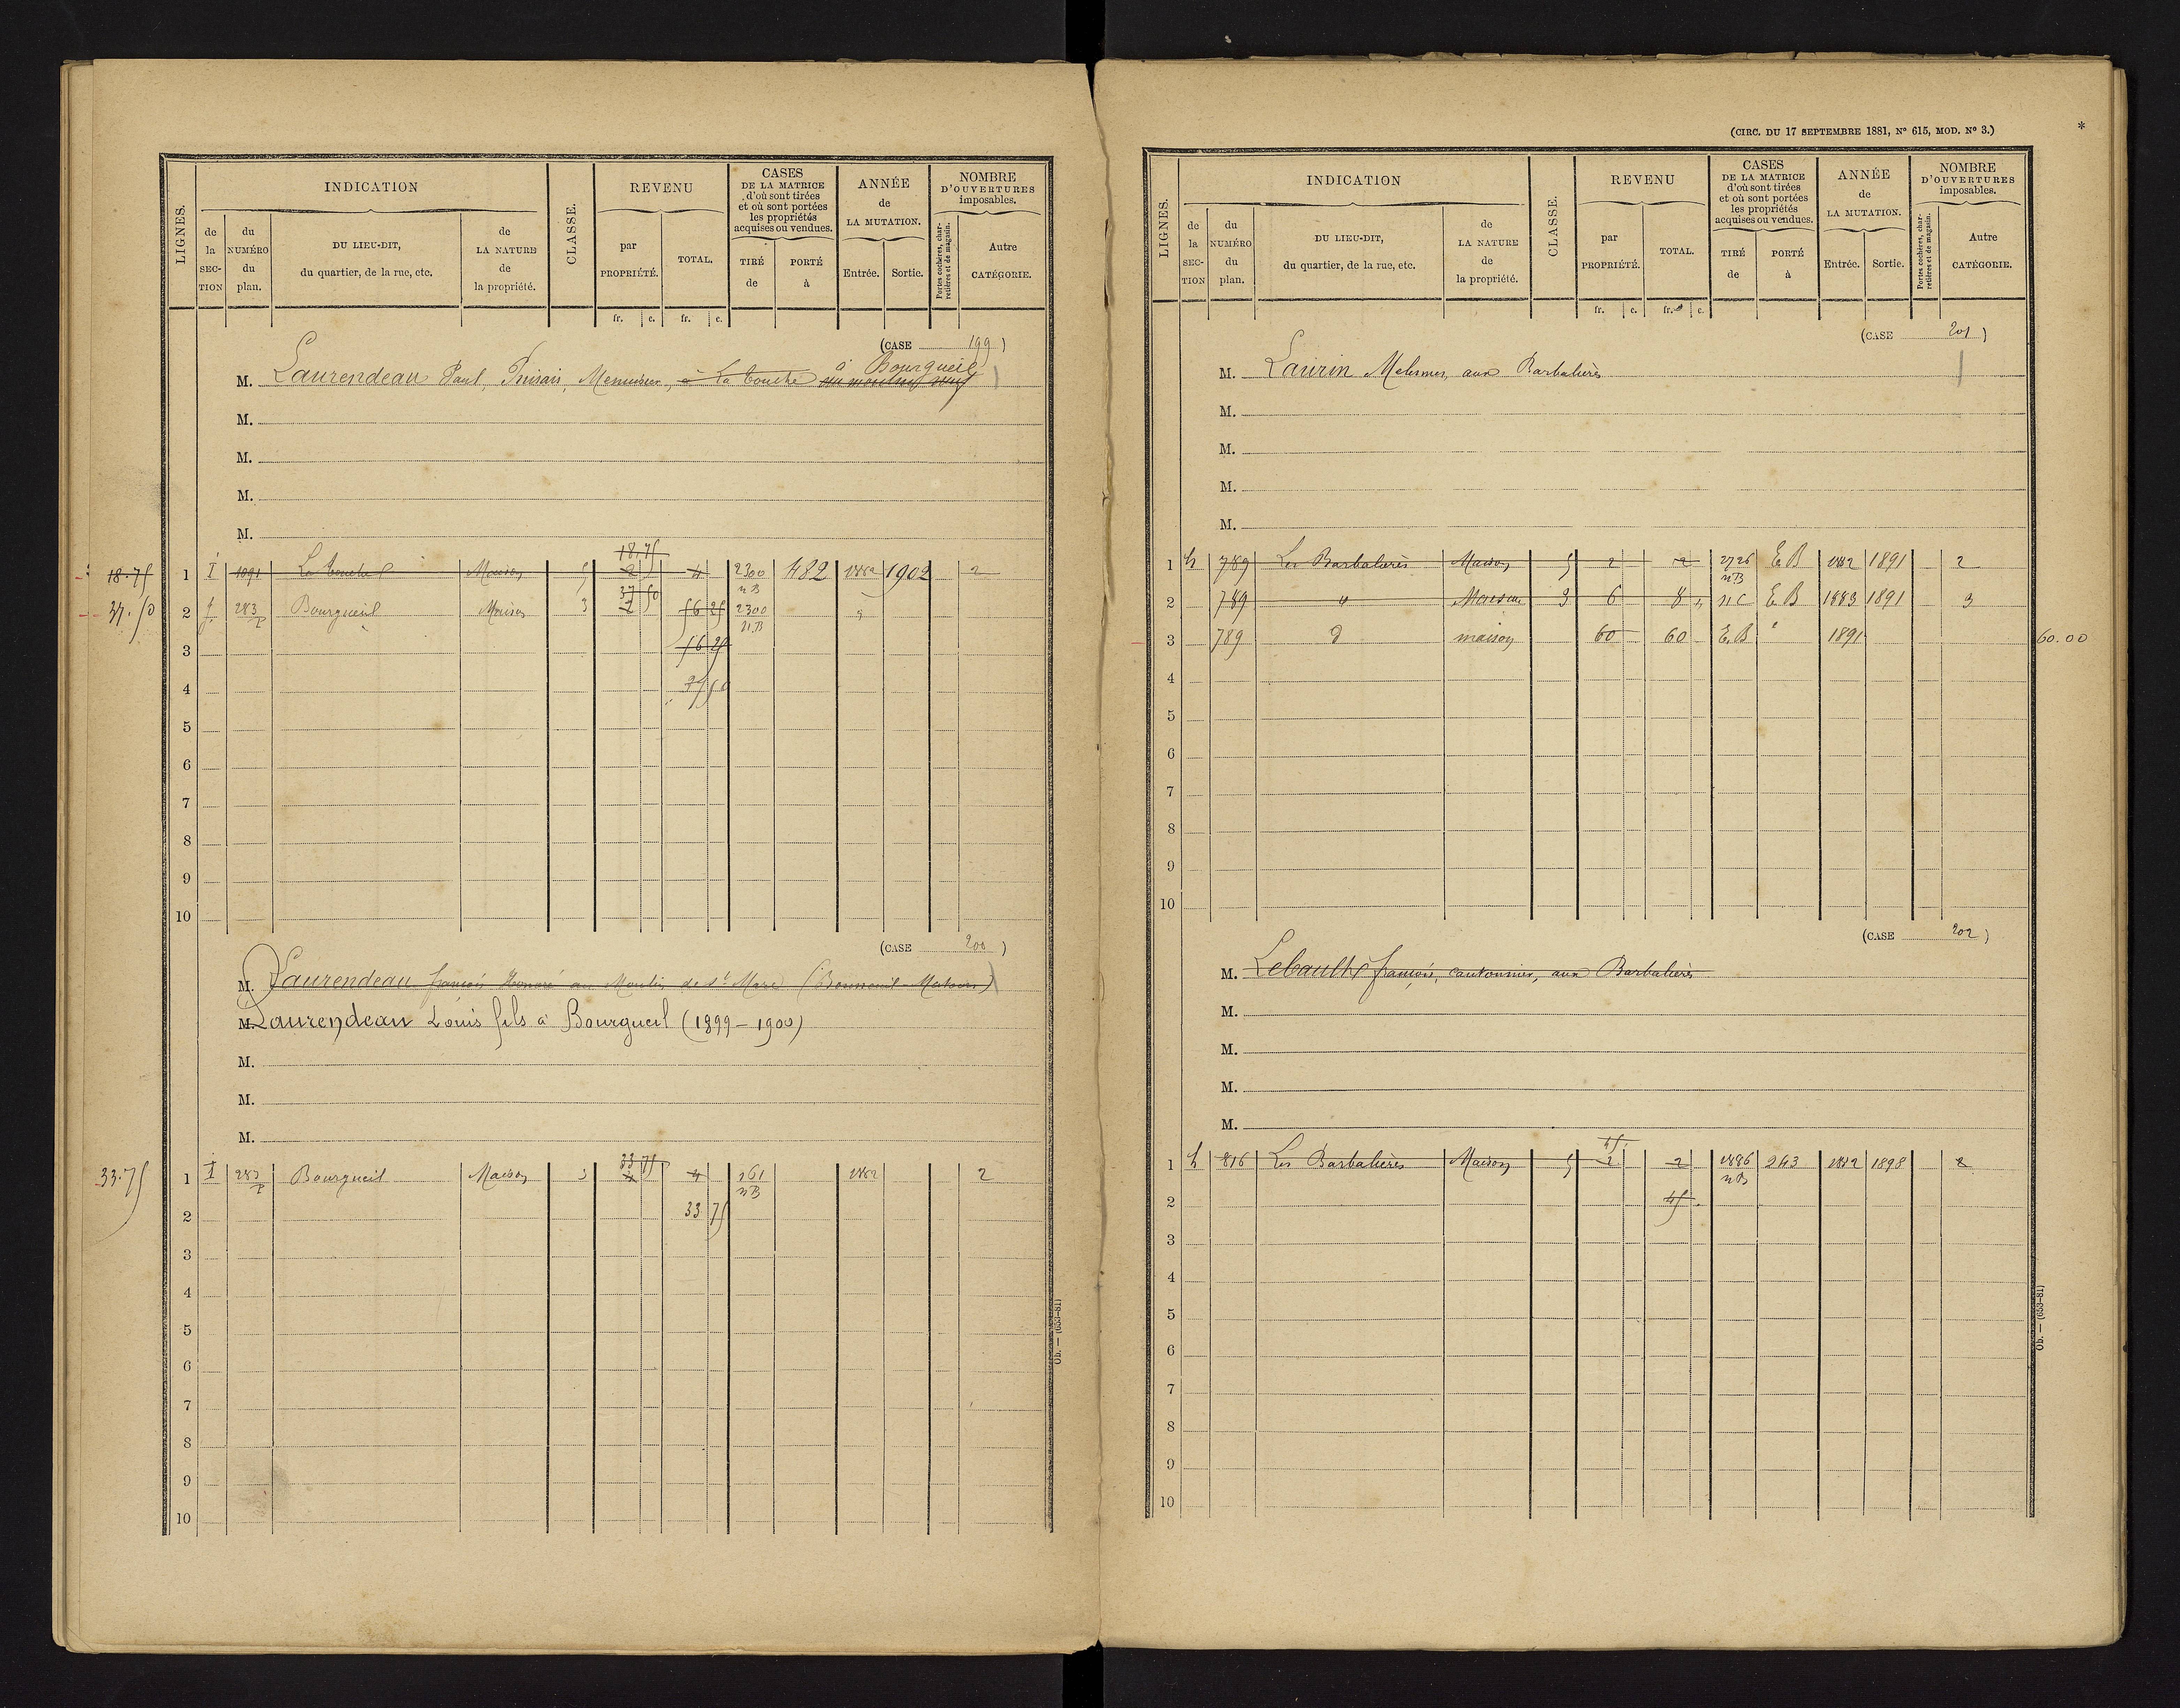 LIGNES.
INDICATION
de la SEC-TION
du NUMÉRO du plan.
DU LIEU-DIT, du quartier, de la rue, etc.
de LA NATURE de la propriété.
CLASSE.
REVENU
par PROPRIÉTÉ.
TOTAL.
fr. c. fr. c.
CASES DE LA MATRICE d'où sont tirées et où sont portées les propriétés acquises ou vendues.
TIRÉ de
PORTÉ à
ANNÉE de LA MUTATION.
Entrée. Sortie.
NOMBRE D'OUVERTURES imposables.
Portes cochères, charretières et de magasin.
Autre CATÉGORIE.
(CASE 199)
à Bourgueil
M. Laurendeau Paul, Menuisier, à La Touche au moulin neuf
M.
M.
M.
M.
18.75
18.75 1 I 1091 La Touche Maison 5 2 4 2300 482 1882 1902 2
nB
37 50
37.50 2 I 283 p Bourgueil Maison 3 56 25 2300
nB
3 56 25
4 37 50
5
6
7
8
9
10
(CASE 200)
M. Laurendeau françois Honoré au Moulin de St Mars (Bonneuil-Matours)
M. Laurendeau Louis fils à Bourgueil (1899-1900)
M.
M.
M.
33 75
33.75 1 I 283 p Bourgueil Maison 3 4 4 161 1882 2
nB
2 33 75
3
4
5
6
7
8
9
10
Ob. — (653-81)
(CIRC. DU 17 SEPTEMBRE 1881, N° 615, MOD. N° 3.)
*
LIGNES.
INDICATION
de la SEC-TION
du NUMÉRO du plan.
DU LIEU-DIT, du quartier, de la rue, etc.
de LA NATURE de la propriété.
CLASSE.
REVENU
par PROPRIÉTÉ.
TOTAL.
fr. c. fr. c.
CASES DE LA MATRICE d'où sont tirées et où sont portées les propriétés acquises ou vendues.
TIRÉ de
PORTÉ à
ANNÉE de LA MUTATION.
Entrée. Sortie.
NOMBRE D'OUVERTURES imposables.
Portes cochères, charretières et de magasin.
Autre CATÉGORIE.
(CASE 201)
M. Laurin aux Barbalières
M.
M.
M.
M.
1 h 789 Les Barbalières Maison 5 2 2 2726 EB 1882 1891 2
nB
2 789 " Maison 3 6 8 nC EB 1883 1891 3
3 789 d maison 60 60 EB 1891 60.00
4
5
6
7
8
9
10
(CASE 202)
M. Lebault françois, cantonnier, aux Barbalières
M.
M.
M.
M.
45
1 h 816 Les Barbalières Maison 5 2 2 1886 243 1882 1898 2
nB
2 45
3
4
5
6
7
8
9
10
Ob. — (653-81)